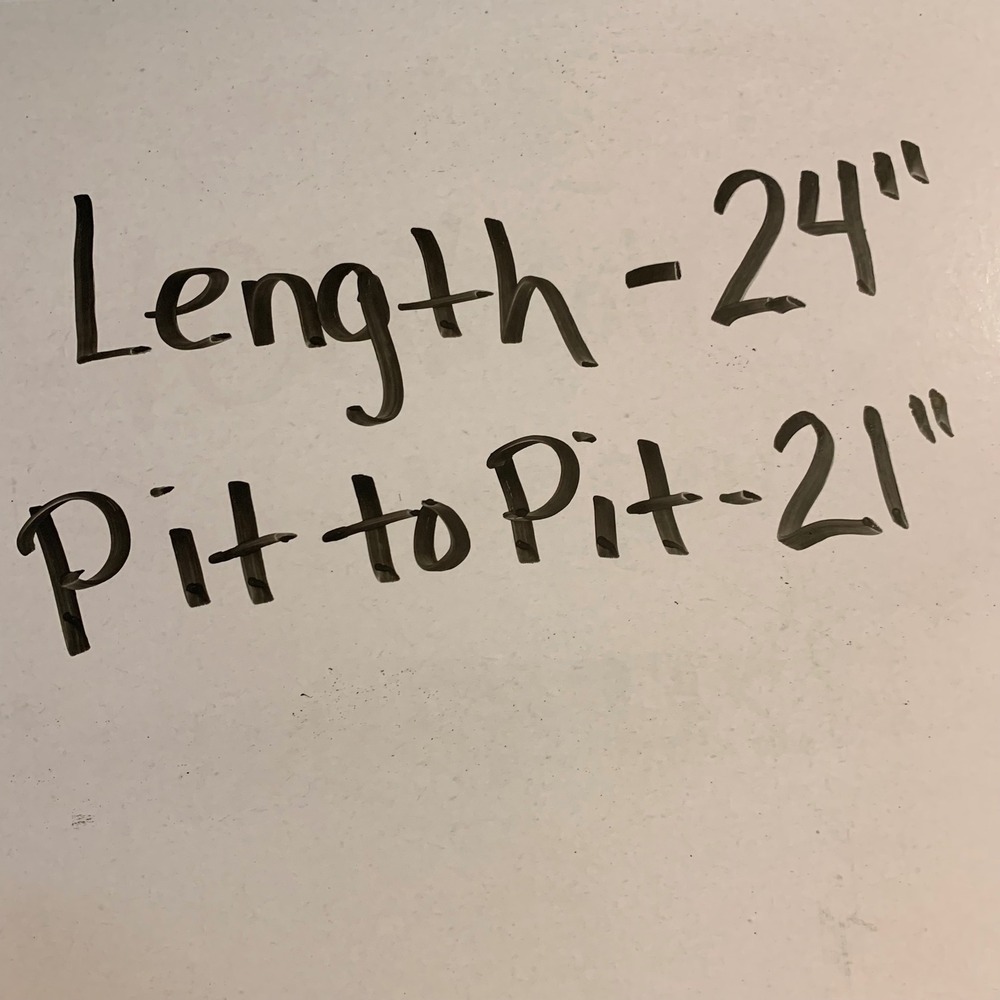 Length - 24"
Pit to Pit - 21"